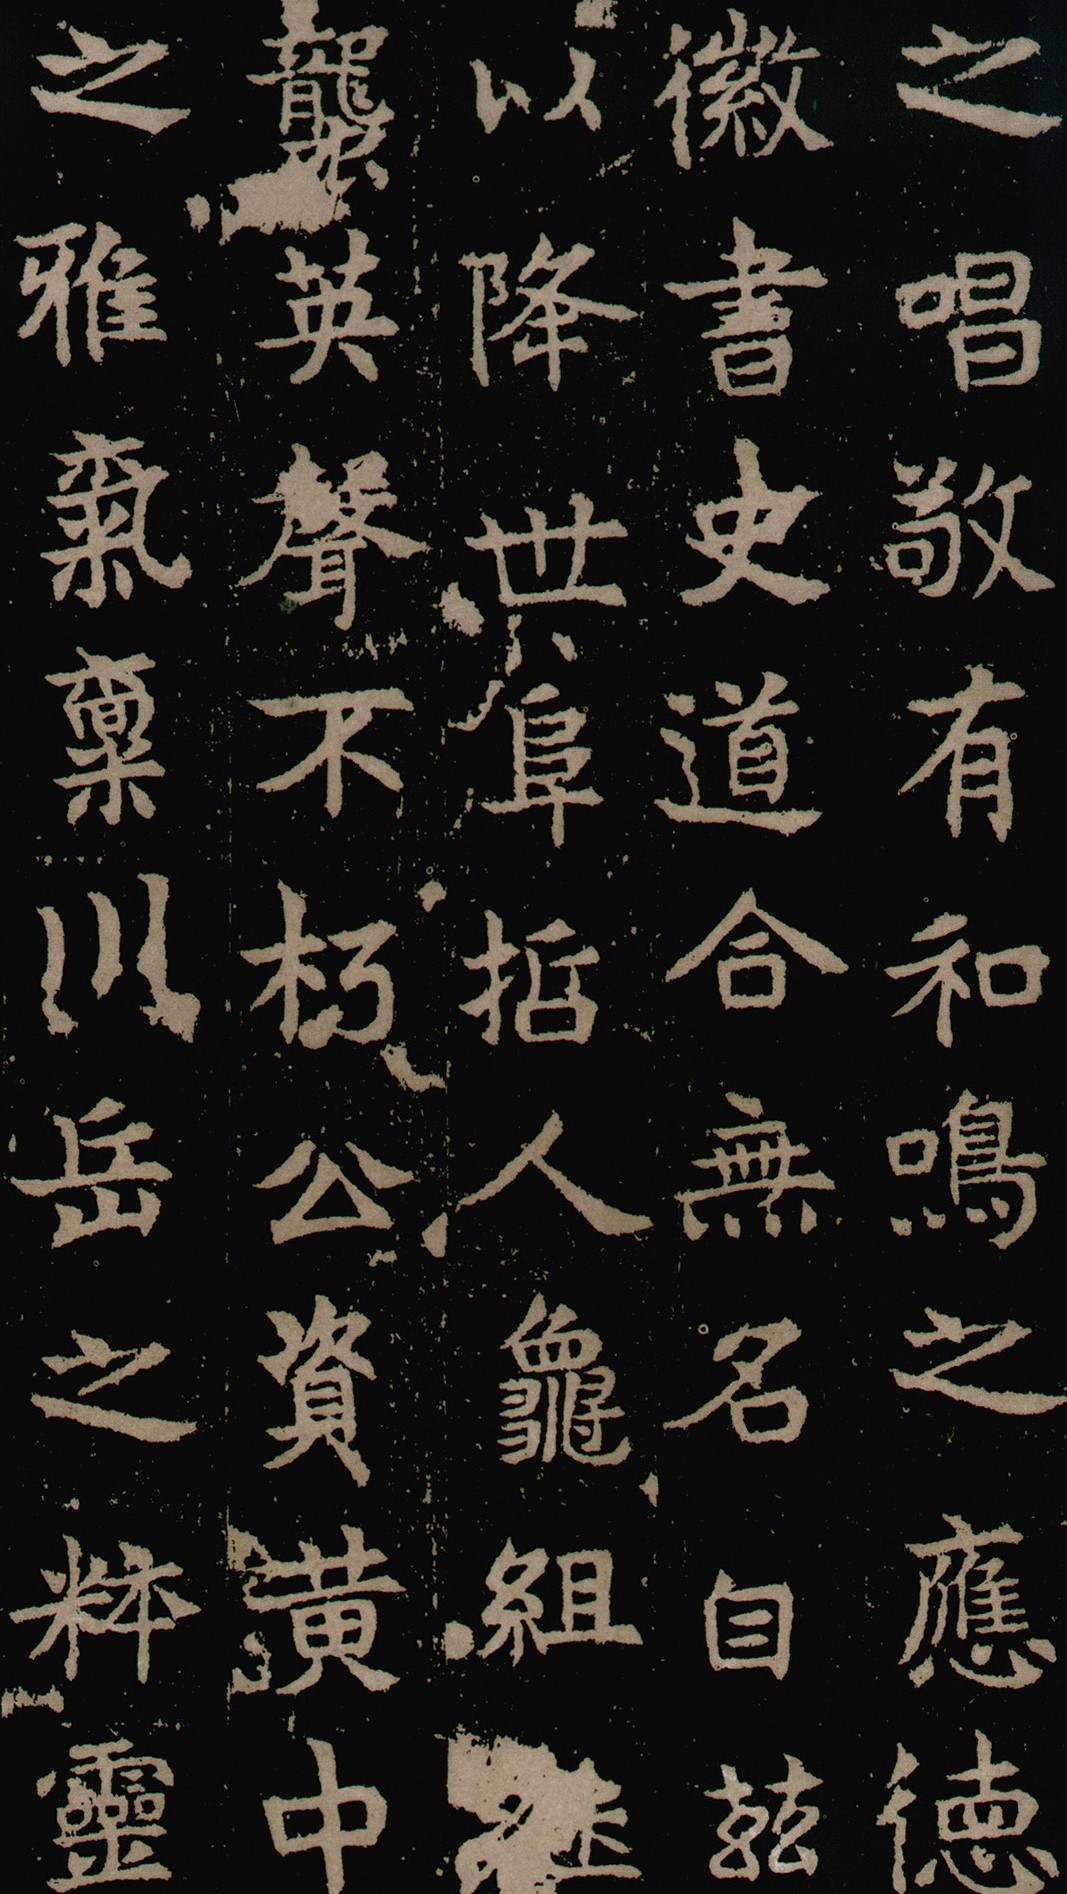 之唱敬有和鳴之應德
徽書史道合無名自玆
以降世阜哲人龜組
襲英聲不朽公資黄中
之雅氣稟川岳之粹靈